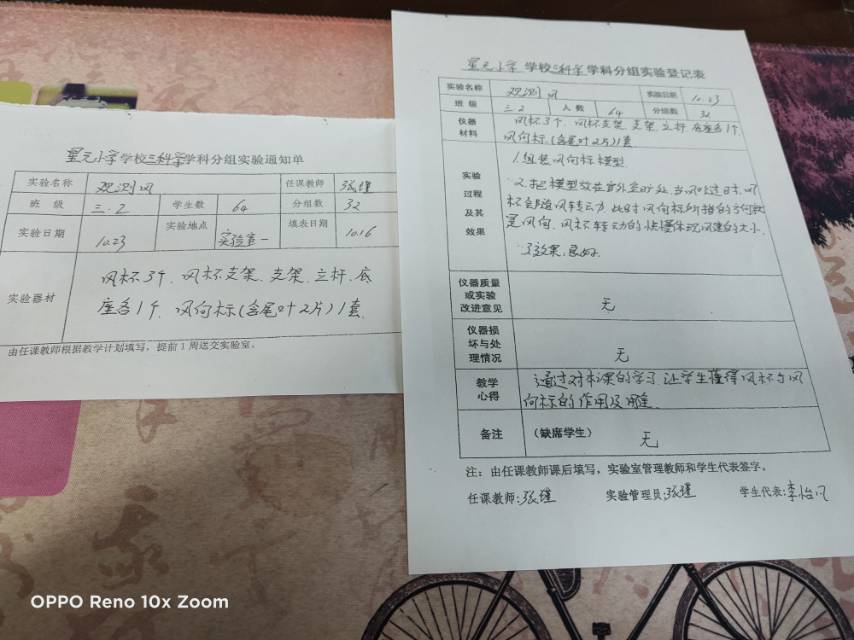 星元小学学校三科学学科分组实验通知单
实验名称 观测风 任课教师 张瑾
班 级 三.2 学生数 64 分组数 32
实验日期 10.23 实验地点 实验室一 填表日期 10.16
实验器材
风杯3个、风杯支架、支架、立杆、底
座各1个、风向标(含尾叶2片)1套
由任课教师根据教学计划填写，提前1周送交实验室。
星元小学学校三科学学科分组实验登记表
实验名称 观测风 实验日期 10.23
班 级 三.2 人 数 64 分组数 32
仪器
材料
风杯3个、风杯支架、支架、立杆、底座各1个
风向标(含尾叶2片)1套
实验
过程
及其
效果
1.组装风向标模型
2.把模型放在室外空旷处,当风吹过时,风
杯会随风转动,此时风向标所指的方向就
是风向、风杯转动的快慢体现风速的大小.
3.效果:良好.
仪器质量
或实验
改进意见
无
仪器损
坏与处
理情况
无
教学
心得
通过对本课的学习让学生懂得风杯与风
向标的作用及用途.
备注 (缺席学生) 无
注：由任课教师课后填写，实验室管理教师和学生代表签字。
任课教师:张瑾 实验管理员:张瑾 学生代表:李怡凡
OPPO Reno 10x Zoom